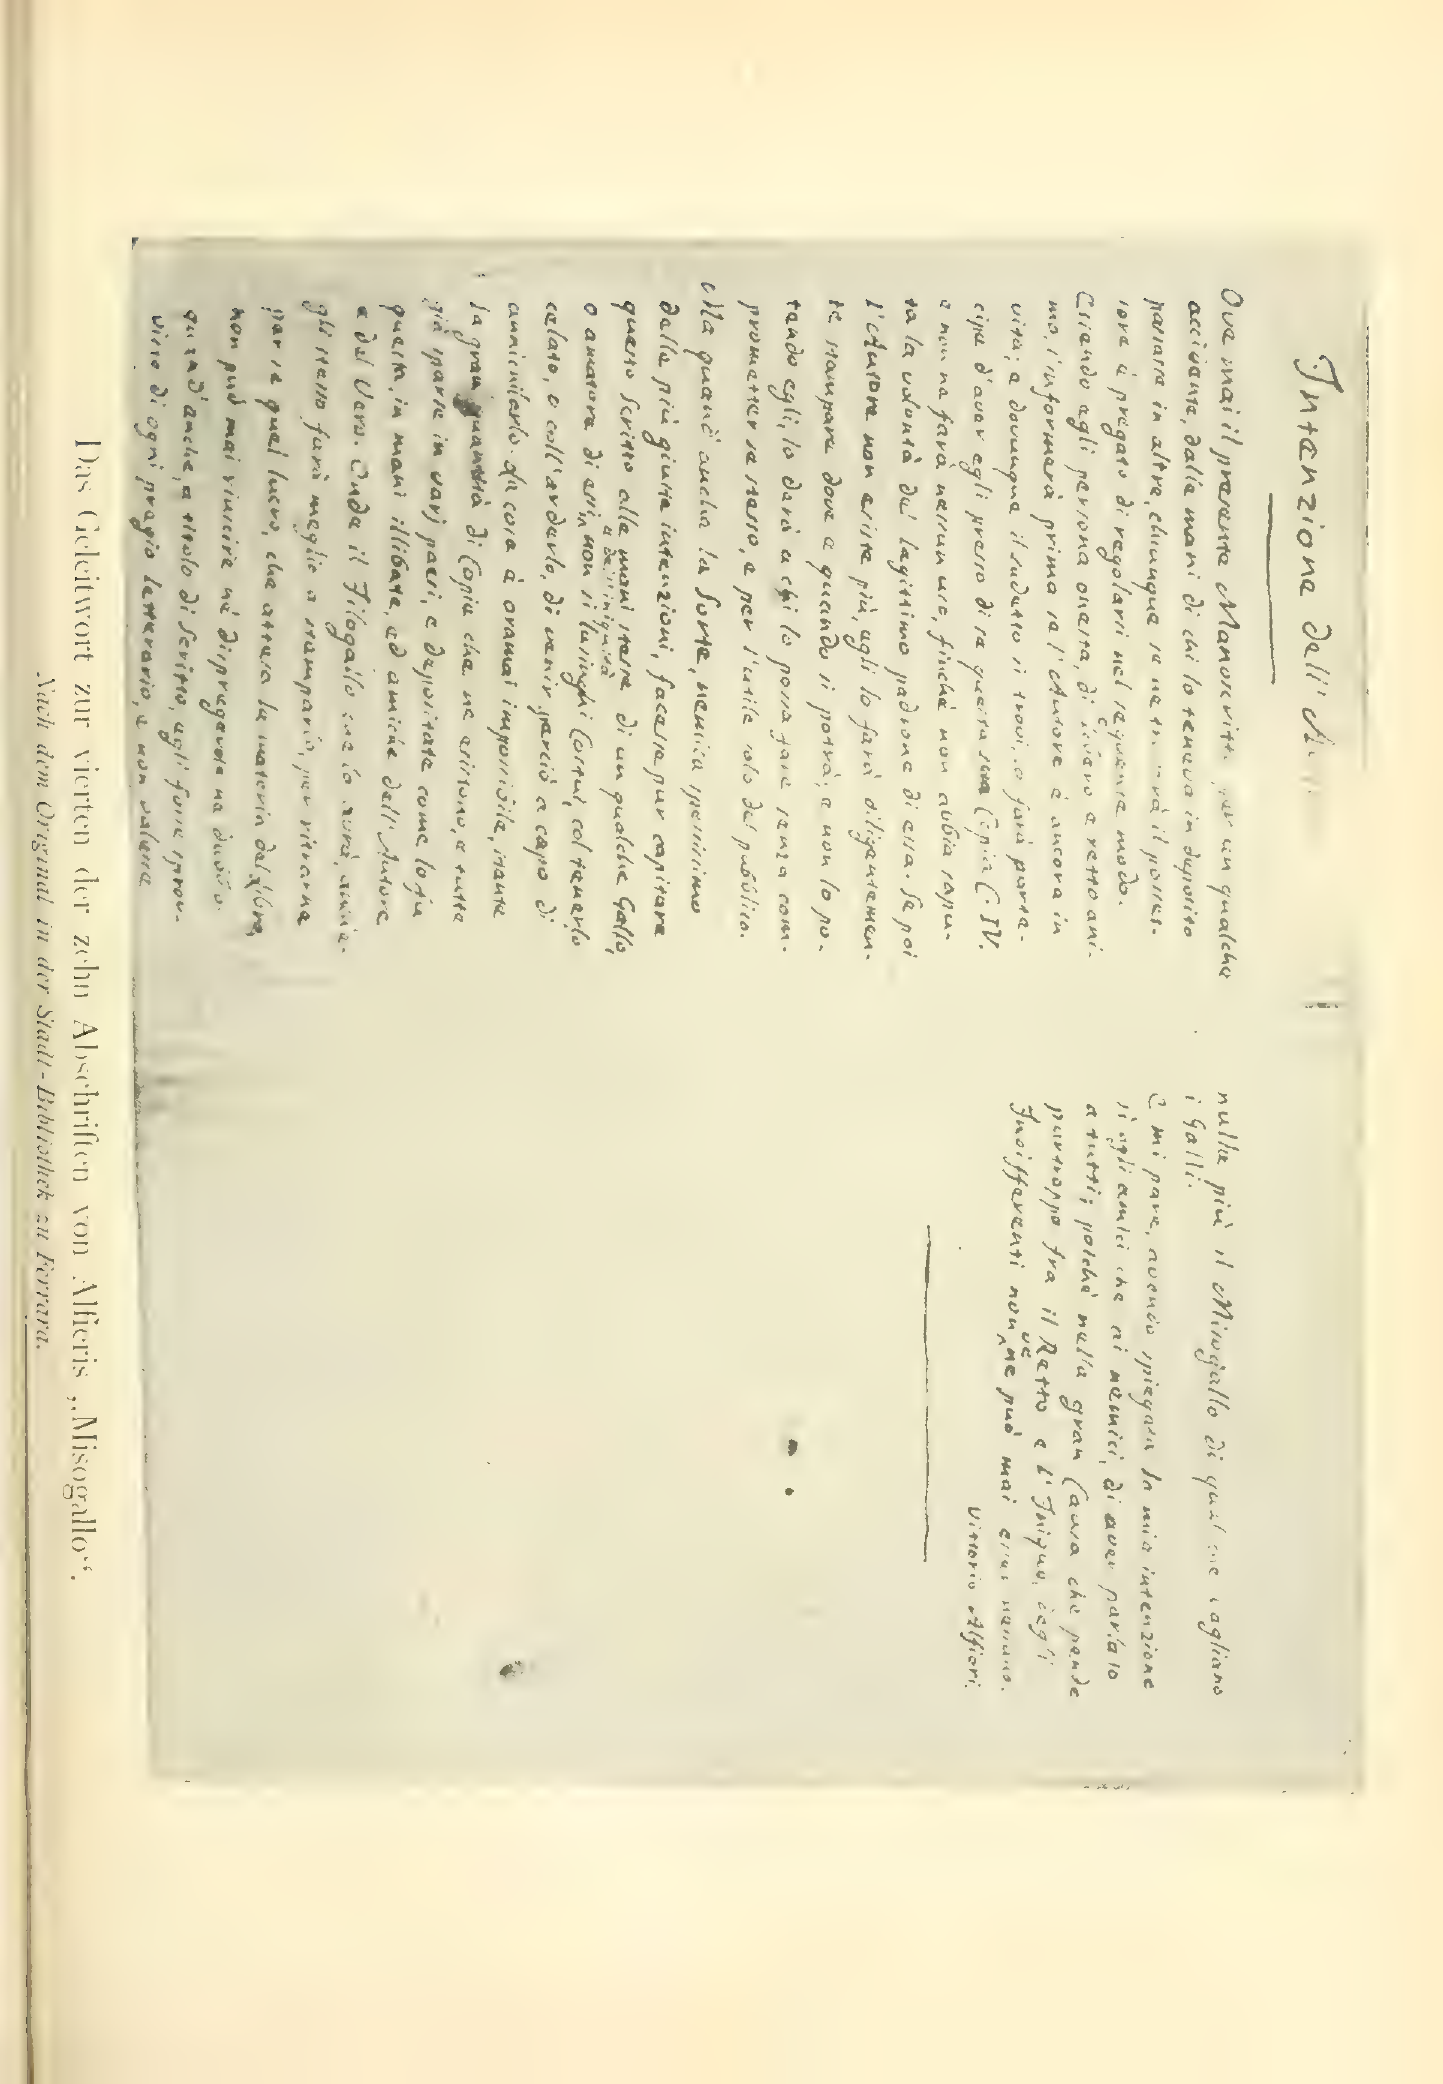 Intenzione dell'
Ove mai il presente Manoscritto per un qualche
accidente, dalle mani di chi lo teneva in deposito
passasse in altre, chiunque se ne troverà il posses-
sore è pregato di regolarsi nel seguente modo.
Essendo egli persona onesta, di libero e retto ani-
mo, s'informerà prima se l'Autore è ancora in
vita; e dovunque il sudetto si trovi, lo farà parte-
cipe d'aver egli presso di se questa sua Copia C. IV.
e non ne farà nessun uso, finchè non abbia sapu-
ta la volontà del legittimo padrone di essa. Se poi
l'Autore non esiste più, egli lo farà diligentemen-
te stampare dove e quando si potrà; e non lo po-
tendo egli, lo darà a chi lo possa fare senza com-
promettere se stesso, e per l'utile solo del pubblico.
Alla quand'anche la Sorte, nemica spessissimo
delle più giuste intenzioni, facesse pur capitare
questo scritto alle mani stesse di un qualche Gallo,
o amatore di essi e dell'iniquità non si lusinghi Costui, col tenerlo
celato, o coll'arderlo, di venir perciò a capo di
annichilarlo. La cosa è oramai impossibile, stante
la gran quantità di Copie che ne esistono, e tutte
già sparse in varj paesi, e depositate come lo sia
questa, in mani illibate, ed amiche dell'Autore
e del Vero. Onde il Filogallo che lo avrà, anch'e-
gli stesso farà meglio a stamparlo, per ritrarne
per se quel lucro, che attesa la materia del libro,
non può mai riuscire nè dispregevole nè dubbio.
quand'anche, a titolo di Scritto, egli fosse sprov-
visto di ogni pregio letterario, e non valesse
nulla più il Misogallo di quel che vagliano
i Galli.
E mi pare, avendo spiegata la mia intenzione
sì agli amici che ai nemici, di aver parlato
a tutti; poichè nella gran Causa che pende
purtroppo fra il Retto e l'Iniquo, degli
Indifferenti non ve ne può mai esser nessuno.
Vittorio Alfieri.
Das Geleitwort zur vierten der zehn Abschriften von Alfieris „Misogallo“.
Nach dem Original in der Stadt-Bibliothek zu Ferrara.